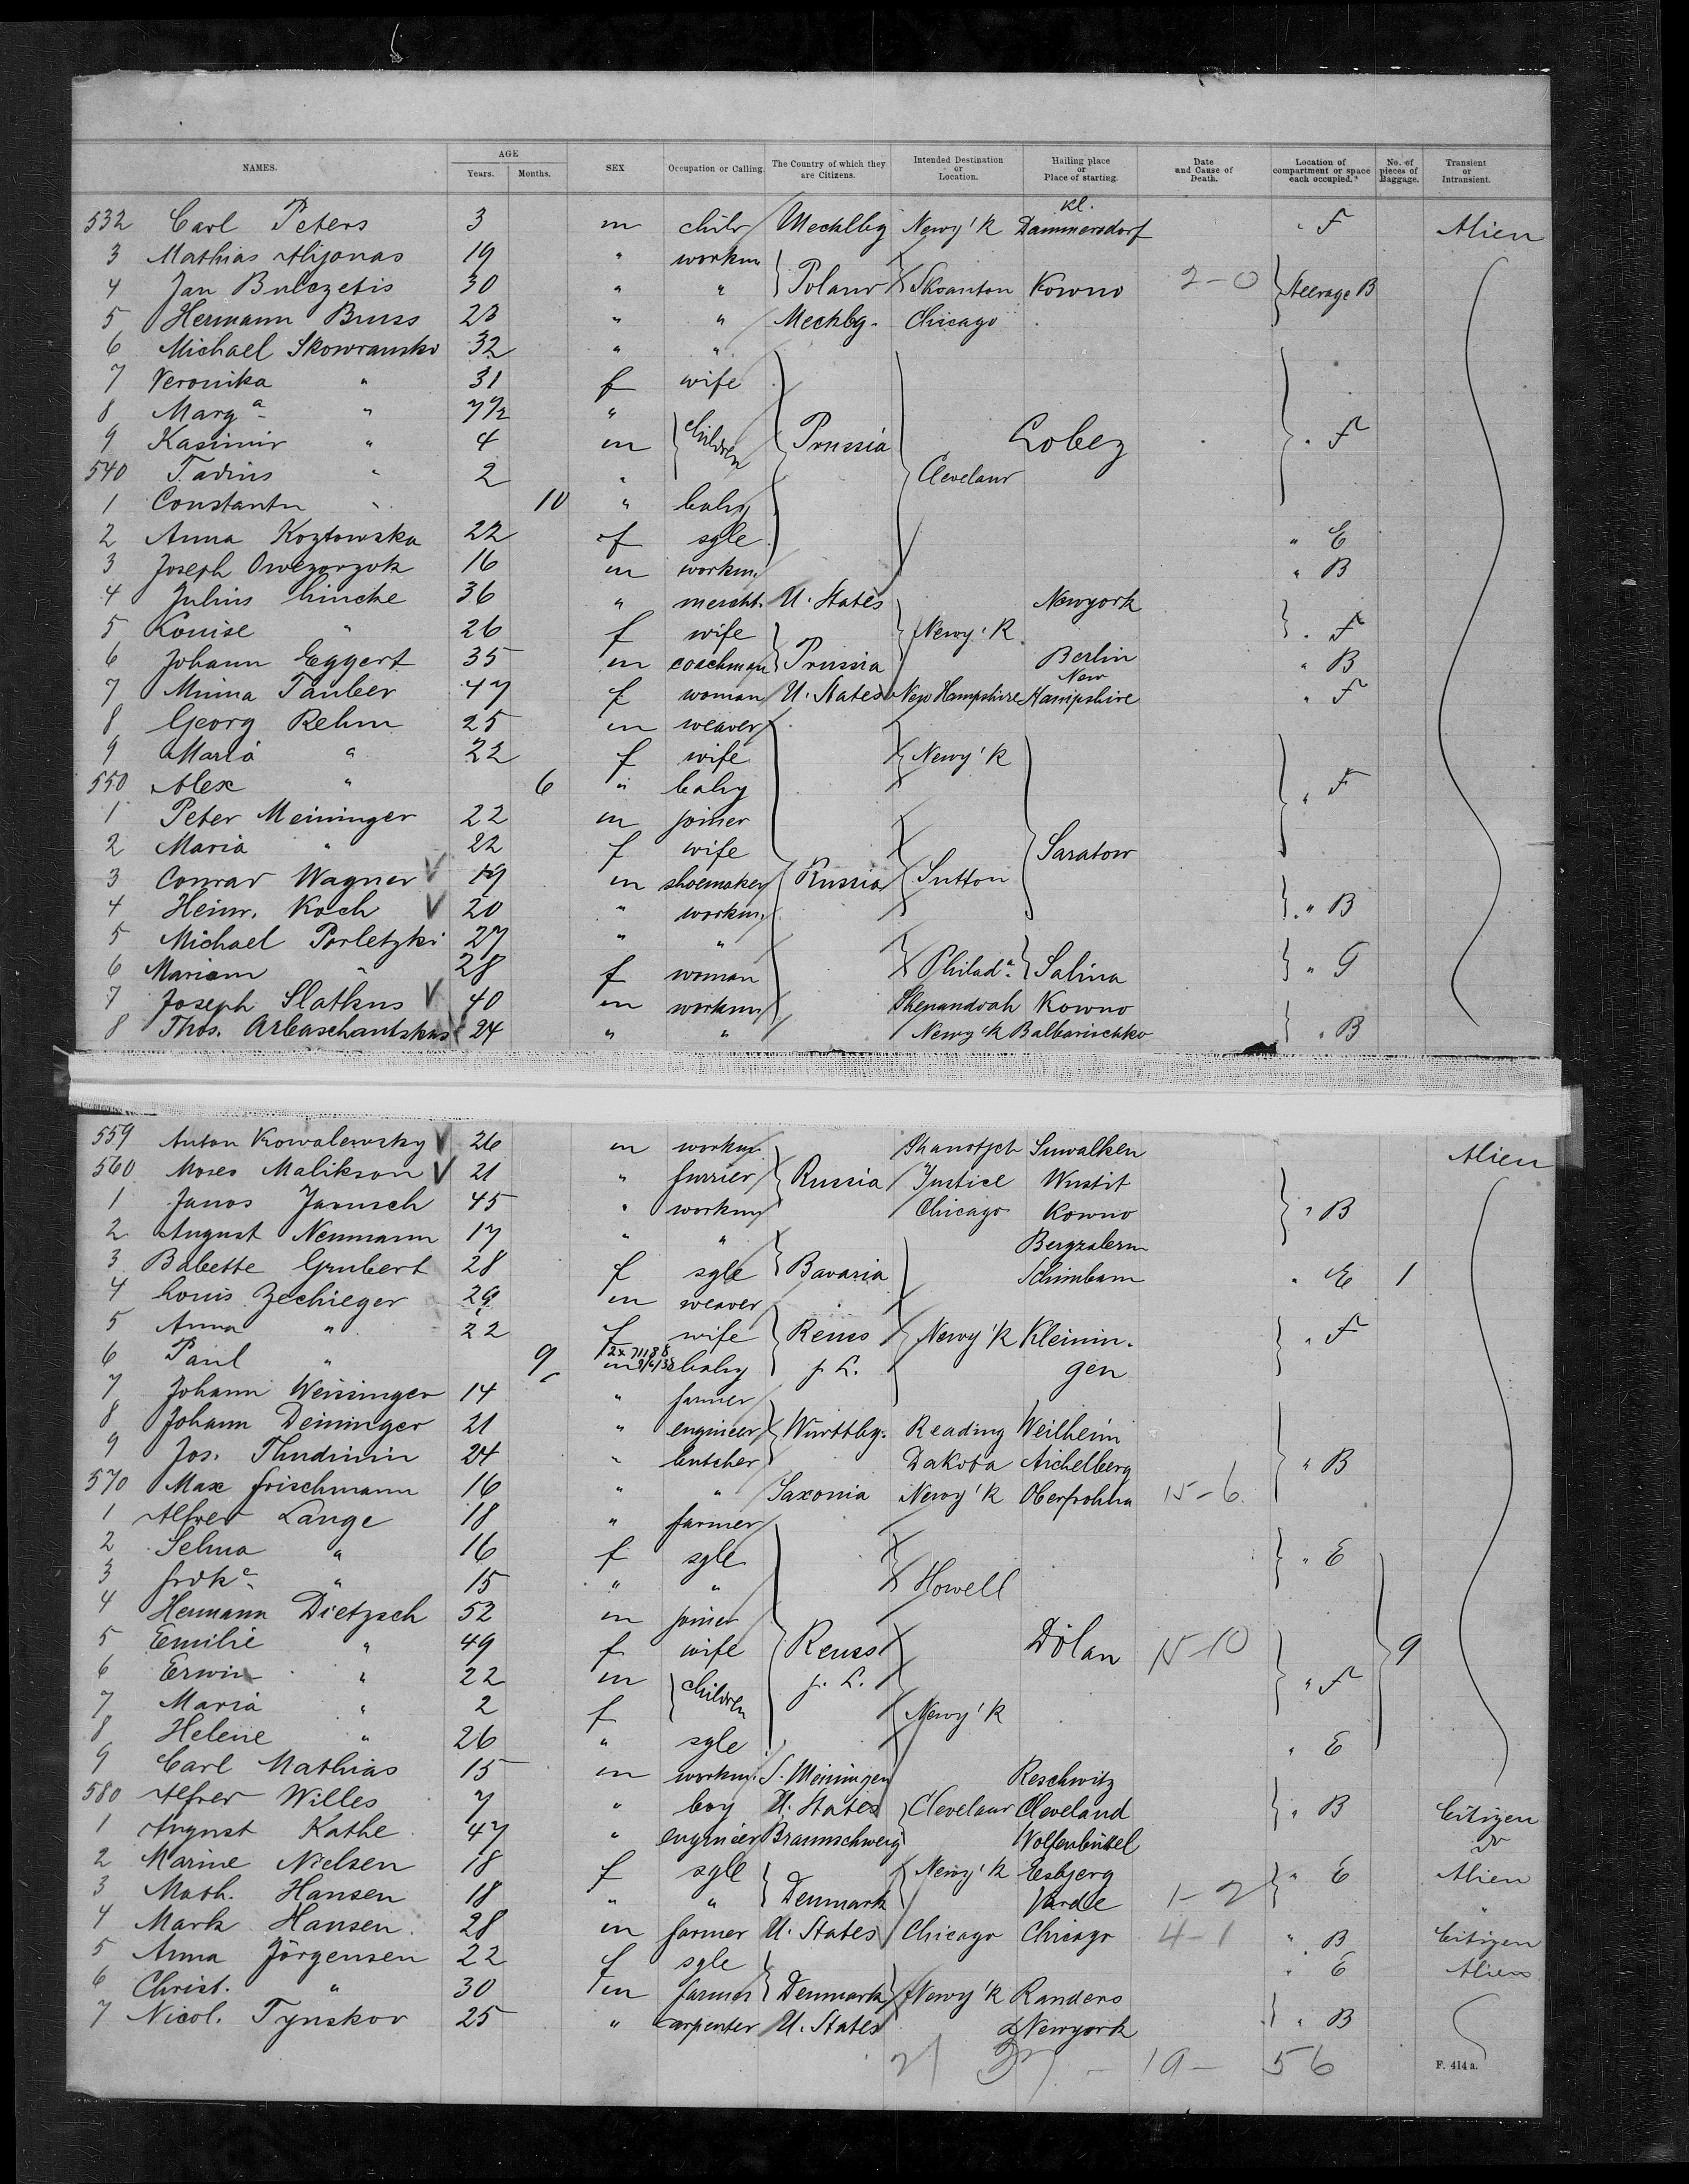 NAMES. AGE Years. Months. SEX Occupation or Calling. The Country of which they are Citizens. Intended Destination or Location. Hailing place or Place of starting. Date and Cause of Death. Location of compartment or space each occupied. No. of pieces of Baggage. Transient or Intransient.
532 Carl Peters 3 m child Mecklbg Newy'k Kl. Dammersdorf " F Alien
3 Mathias Alijonas 19 " workm
4 Jan Bulczetis 30 " " Poland Skranton Kowno 2-0 Steerage B
5 Hermann Bruss 23 " " Mecklbg. Chicago
6 Michael Skowranski 32 " "
7 Veronika " 31 f wife
8 Marga " 7½ "
9 Kasimir " 4 m children Prussia Lobez " F
540 Tadius " 2 " Cleveland
1 Constantn " 10 " baby
2 Anna Kozlowska 22 f sgle " E
3 Joseph Owezorzok 16 m workm " B
4 Julius Lincke 36 " mercht. U. States Newyork
5 Louise " 26 f wife Newy'k " F
6 Johann Eggert 35 m coachman Prussia Berlin " B
7 Minna Tauber 47 f woman U. States New Hampshire New Hampshire " F
8 Georg Rehm 25 m weaver
9 Maria " 22 f wife Newy'k
550 Alex " 6 " baby " F
1 Peter Meininger 22 m joiner
2 Maria " 22 f wife Saratow
3 Conrad Wagner V 19 m shoemaker Russia Sutton
4 Heinr. Koch V 20 " workm " B
5 Michael Porletzki 27 " "
6 Mariam " 28 f woman Philada. Salina " G
7 Joseph Slatkus V 40 m workm Shenandoah Kowno
8 Thos. Arbaschautskas 24 " " Newy'k Balbarischko " B
559 Anton Kowalewsky V 26 m workm Suwalken Alien
560 Moses Malikson V 21 " furrier Russia Justice Wustit
1 Janos Janusch 45 " workm Chicago Kowno " B
2 August Neumann 17 " " Bergzabern
3 Babette Grubert 28 f sgle Bavaria " E 1
4 Louis Zechieger 29 m weaver
5 Anna " 22 f wife Reuss Newy'k Kleinin- " F
6 Paul " 9 m baby j. L. gen
7 Johann Weisinger 14 " farmer
8 Johann Deininger 21 " engineer Württbg. Reading Weilheim
9 Jos. Thudiwin 24 " butcher Dakota Aichelberg " B
570 Max Frischmann 16 " " Saxonia Newy'k Oberfrohna 15-6
1 Alfred Lange 18 " farmer
2 Selma " 16 f sgle " E
3 Frdke. " 15 " " Howell
4 Hermann Dietzsch 52 m joiner
5 Emilie " 49 f wife Reuss Dölan 15-10 9
6 Erwin " 22 m children j. L. " F
7 Maria " 2 f Newy'k
8 Helene " 26 " sgle " E
9 Carl Mathias 15 m workm. S. Meiningen Reschwitz
580 Alfred Willes 7 " boy U. States Cleveland Cleveland " B Citizen
1 August Kathe 47 " engineer Braunschweig Wolfenbüttel do
2 Marine Nielsen 18 f sgle Newy'k Esbjerg " E Alien
3 Math. Hansen 18 " " Denmark Varde 1-2 "
4 Mark Hansen 28 m farmer U. States Chicago Chicago 4-1 " B Citizen
5 Anna Jörgensen 22 f sgle " E Alien
6 Christ. " 30 m farmer Denmark Newy'k Randers
7 Nicol. Tynskov 25 " carpenter U. States Newyork " B
19- 56 F. 414 a.